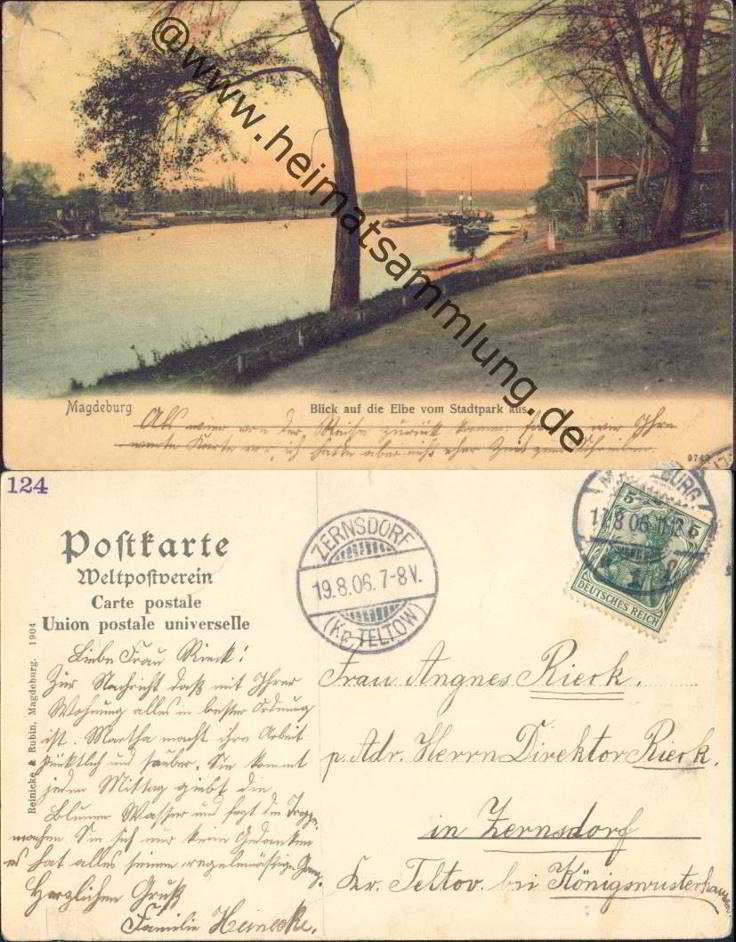 @www.heimatsammlung.de
Magdeburg
Blick auf die Elbe vom Stadtpark aus.
Als wir von der Reise zurück kamen wir Ihre
werte Karte vor, ich hatte aber nicht eher Zeit zum Schreiben.
124
Postkarte
Weltpostverein
Carte postale
Union postale universelle
Reinicke & Rubin, Magdeburg. 1904
ZERNSDORF
19.8.06. 7-8V.
(Kr. TELTOW)
MAGDEBURG
8 06
5 5
DEUTSCHES REICH
Liebe Frau Rieck!
Zur Nachricht daß mit Ihrer
Wohnung alles in bester Ordnung
ist. Martha macht ihre Arbeit
pünktlich und sauber. Sie kommt
jeden Mittag giebt die
Blumen Wasser und fegt die Treppe
machen Sie sich nur kein Gedanken
es hat alles seinen regelmäßigen Gang.
Herzlichen Gruß
Familie Heinecke.
Frau Angnes Rieck.
p. Adr. Herrn Direktor Rieck.
in Zernsdorf
Kr. Teltov. bei Königswusterhausen